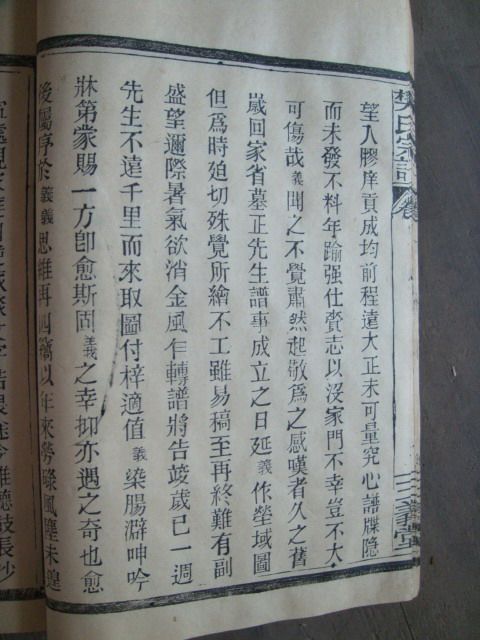 樊氏宗譜 卷
三義堂
望入膠庠貢成均前程遠大正未可量究心譜牒隱
而未發不料年踰强仕賫志以沒家門不幸豈不大
可傷哉義聞之不覺肅然起敬為之感嘆者久之舊
歲回家省墓正先生譜事成立之日延義作塋域圖
但為時廹切殊覺所繪不工雖易稿至再終難有副
盛望邇際暑氣欲消金風乍轉譜將告竣歲已一週
先生不遠千里而來取圖付梓適值義染腸澼呻吟
牀第蒙賜一方卽愈斯固義之幸抑亦遇之奇也愈
後囑序於義義思維再四竊以年來勞碌風塵未遑